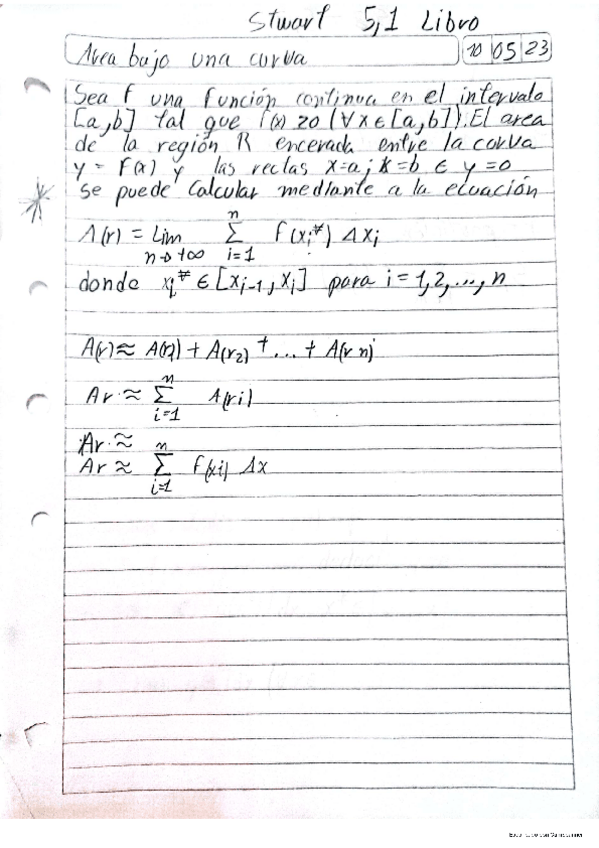 Stwart 5,1 Libro
Area bajo una curva 10 05 23
Sea f una función continua en el intervalo
[a,b] tal que f(x) ≥ 0 (∀x∈[a,b]). El area
de la región R encerada entre la corva
y = F(x) y las rectas x=a; x=b ∈ y=0
se puede Calcular mediante a la ecuación
A(r) = Lim n→+∞ n Σ i=1 F(xi*) Δxi
donde xi* ∈ [xi-1, xi] para i = 1,2,...,n
A(r) ≈ A(r1) + A(r2) + ... + A(r n)
Ar ≈ n Σ i=1 A(ri)
Ar ≈
Ar ≈ n Σ i=1 F(xi) Δx